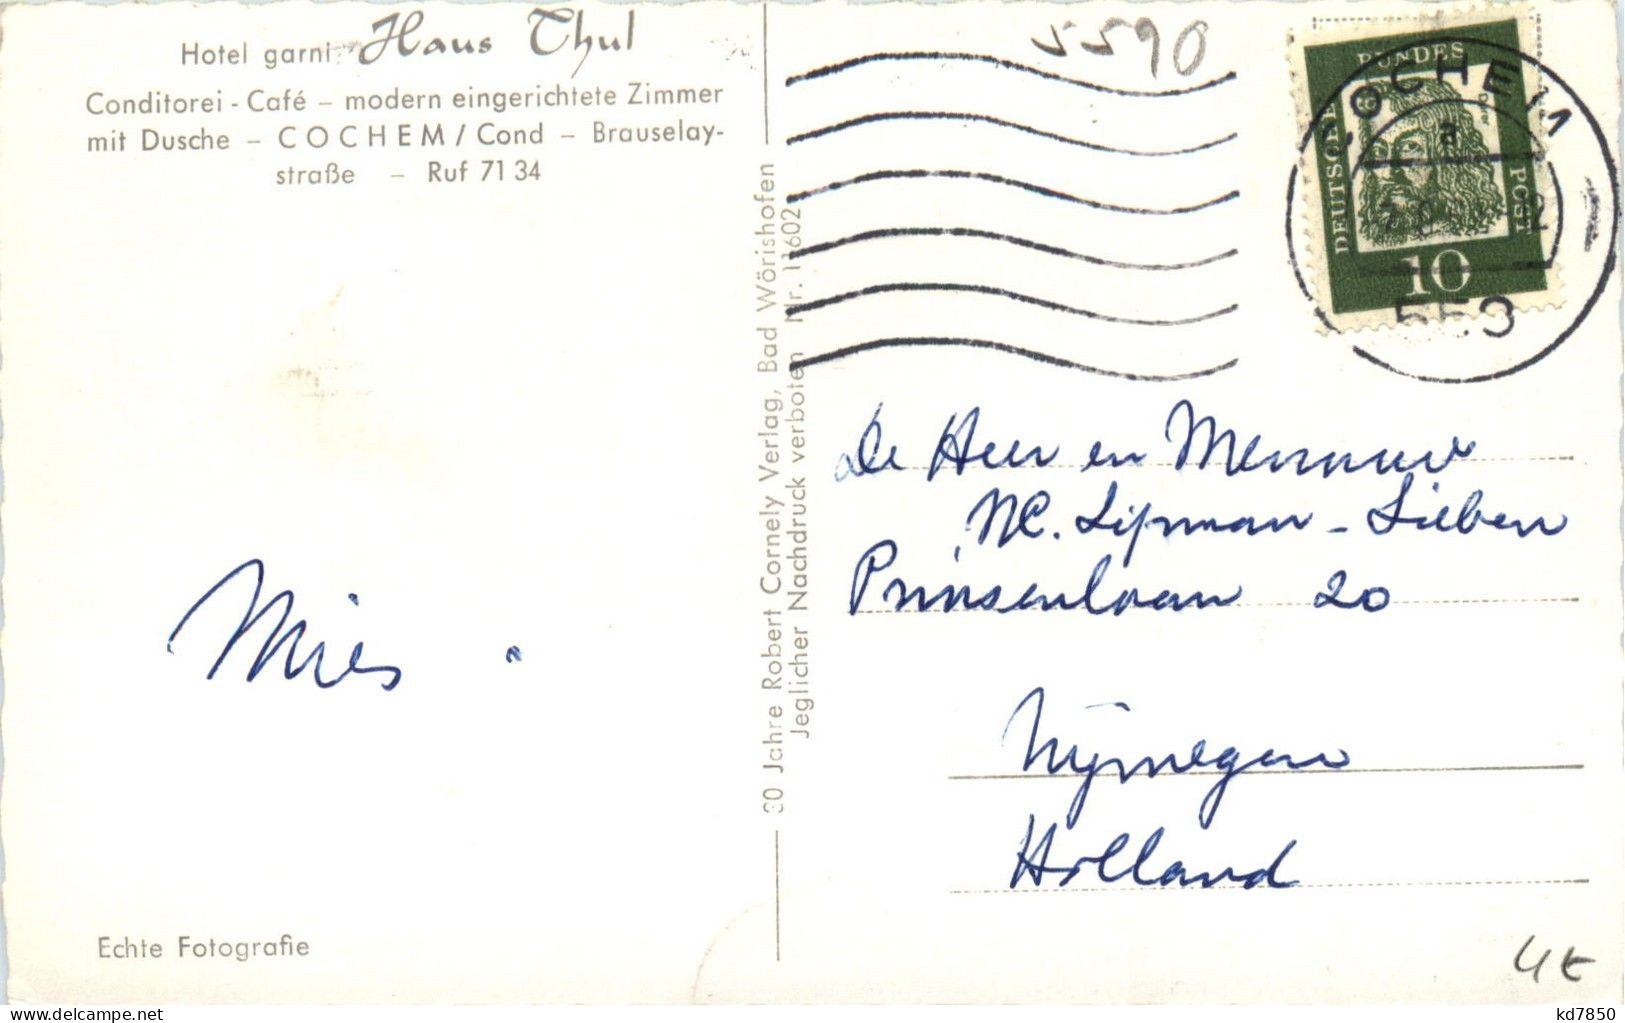 Hotel garni Haus Thul
Conditorei - Café – modern eingerichtete Zimmer
mit Dusche – COCHEM / Cond – Brauselay-
straße – Ruf 71 34
Mies
Echte Fotografie
30 Jahre Robert Cornely Verlag, Bad Wörishofen
Jeglicher Nachdruck verboten Nr. 11602
5590
DEUTSCHE BUNDES POST
10
COCHEM
a
553
De Heer en Mevrouw
M. Lipman - Lieben
Prinsenlaan 20
Nijmegen
Holland
4€
kd7850